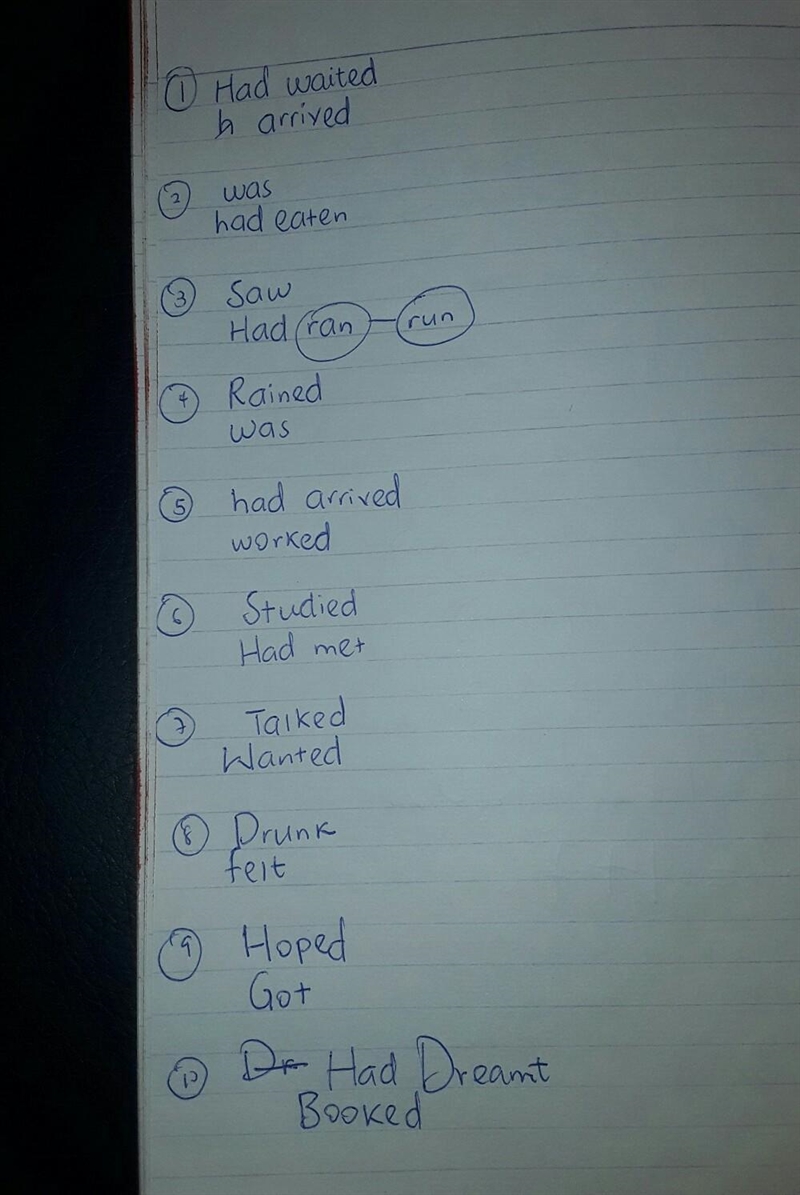 1 Had waited
h arrived
2 was
had eaten
3 Saw
Had ran – run
4 Rained
was
5 had arrived
worked
6 Studied
Had met
7 Talked
Wanted
8 Drunk
felt
9 Hoped
Got
10 Dr Had Dreamt
Booked